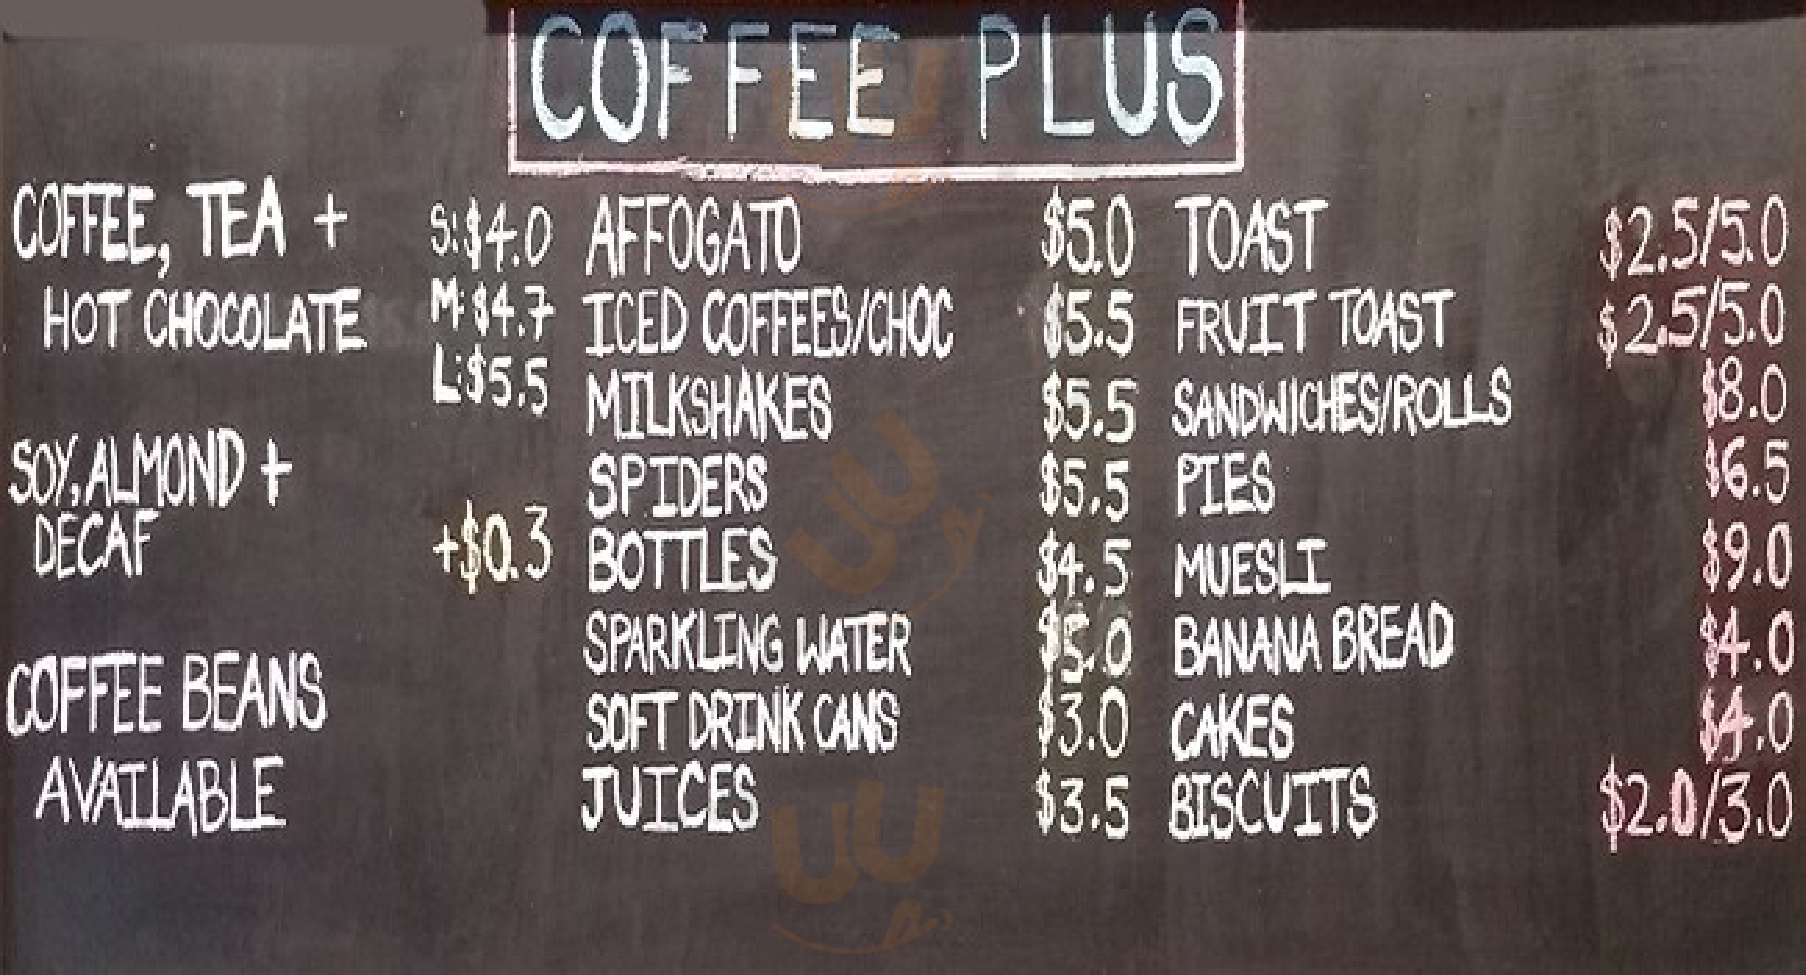 COFFEE PLUS
COFFEE, TEA +
HOT CHOCOLATE
S:$4.0
M:$4.7
L:$5.5
SOY, ALMOND +
DECAF +$0.3
COFFEE BEANS
AVAILABLE
AFFOGATO $5.0
ICED COFFEES/CHOC $5.5
MILKSHAKES $5.5
SPIDERS $5.5
BOTTLES $4.5
SPARKLING WATER $5.0
SOFT DRINK CANS $3.0
JUICES $3.5
TOAST $2.5/5.0
FRUIT TOAST $2.5/5.0
SANDWICHES/ROLLS $8.0
PIES $6.5
MUESLI $9.0
BANANA BREAD $4.0
CAKES $4.0
BISCUITS $2.0/3.0